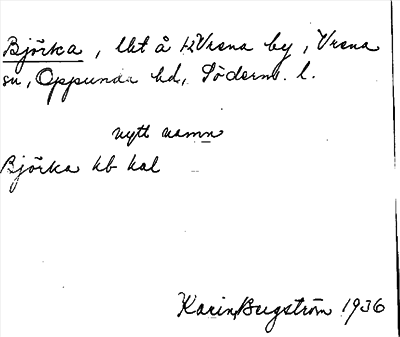 Björka, lht å K Vrena by, Vrena
sn, Oppunda hd, Söderm. l.
nytt namn
Björka hb kal
Karin Bergström 1936